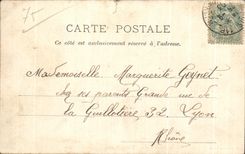 75
CARTE POSTALE
Ce côté est exclusivement réservé à l'adresse.
Mademoiselle Marguerite Goynet
chez ses parents Grande rue de
la Guillotière 32 Lyon
Rhône